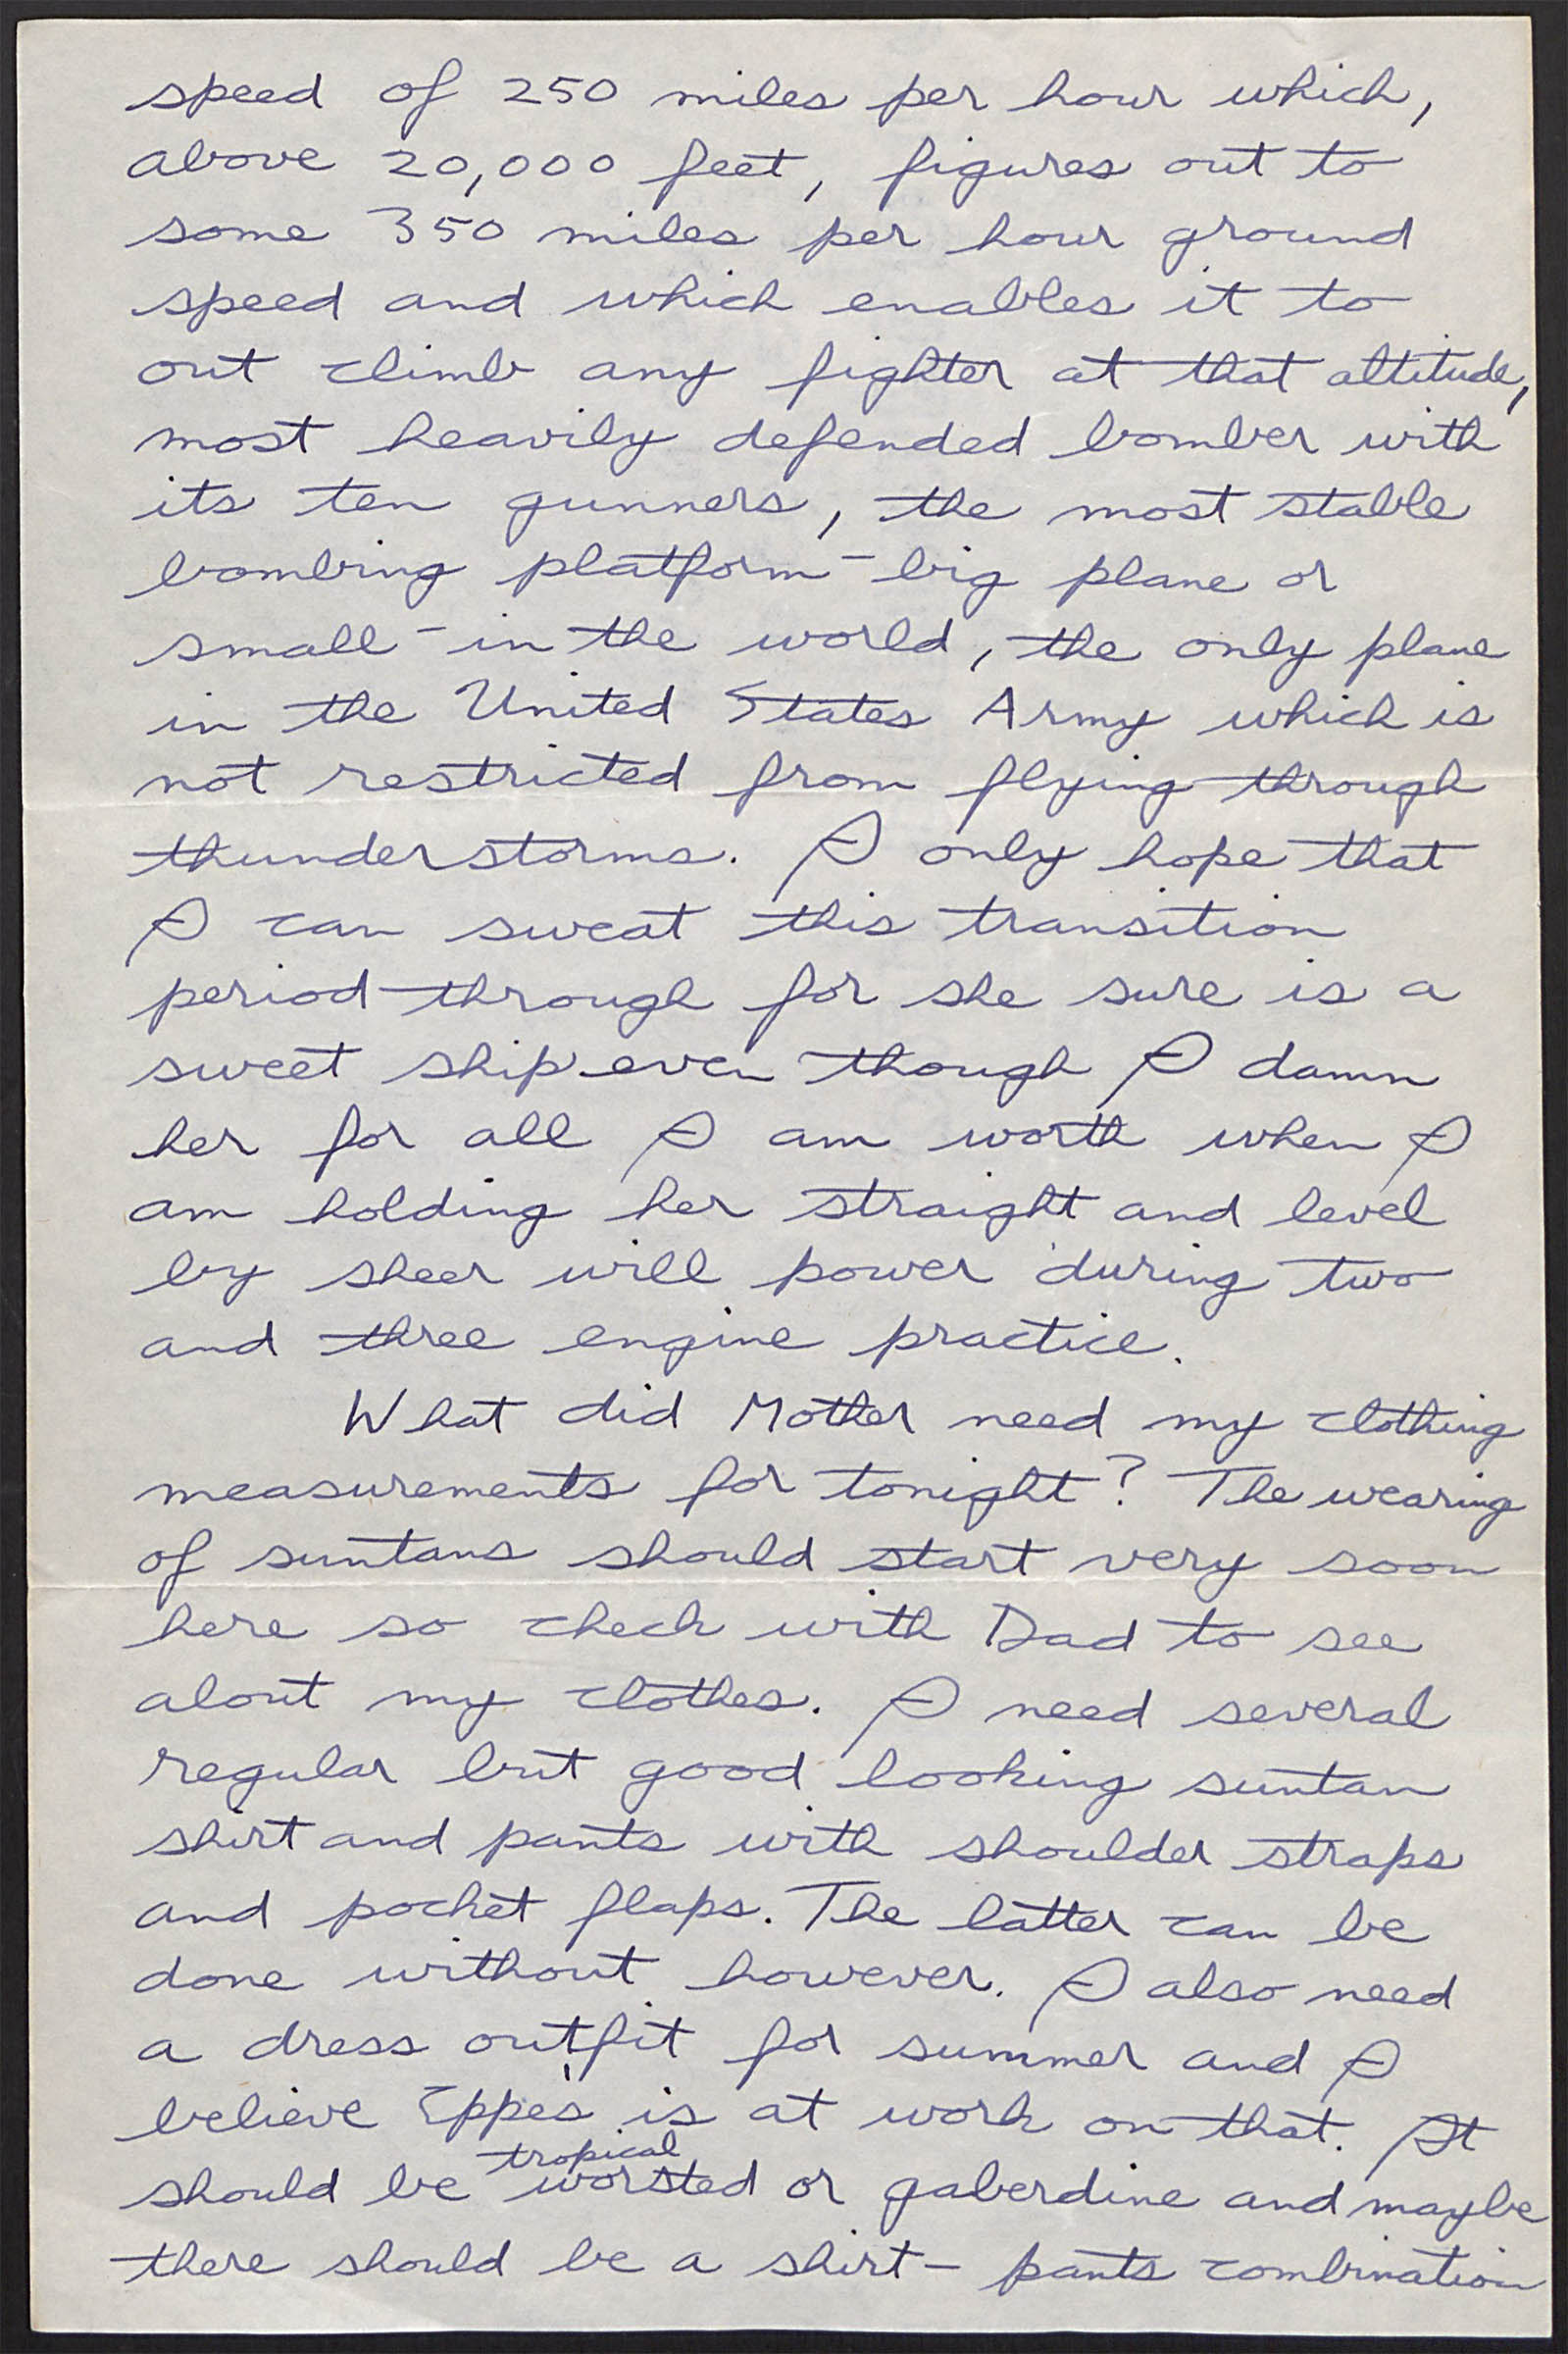 speed of 250 miles per hour which,
above 20,000 feet, figures out to
some 350 miles per hour ground
speed and which enables it to
out climb any fighter at that altitude,
most heavily defended bomber with
its ten gunners, the most stable
bombing platform - big plane or
small - in the world, the only plane
in the United States Army which is
not restricted from flying through
thunderstorms. I only hope that
I can sweat this transition
period through for she sure is a
sweet ship even though I damn
her for all I am worth when I
am holding her straight and level
by sheer will power during two
and three engine practice.
What did Mother need my clothing
measurements for tonight? The wearing
of suntans should start very soon
here so check with Dad to see
about my clothes. I need several
regular but good looking suntan
shirt and pants with shoulder straps
and pocket flaps. The latter can be
done without however. I also need
a dress outfit for summer and I
believe Eppe's is at work on that. It
should be tropical worsted or gaberdine and maybe
there should be a shirt - pants combination